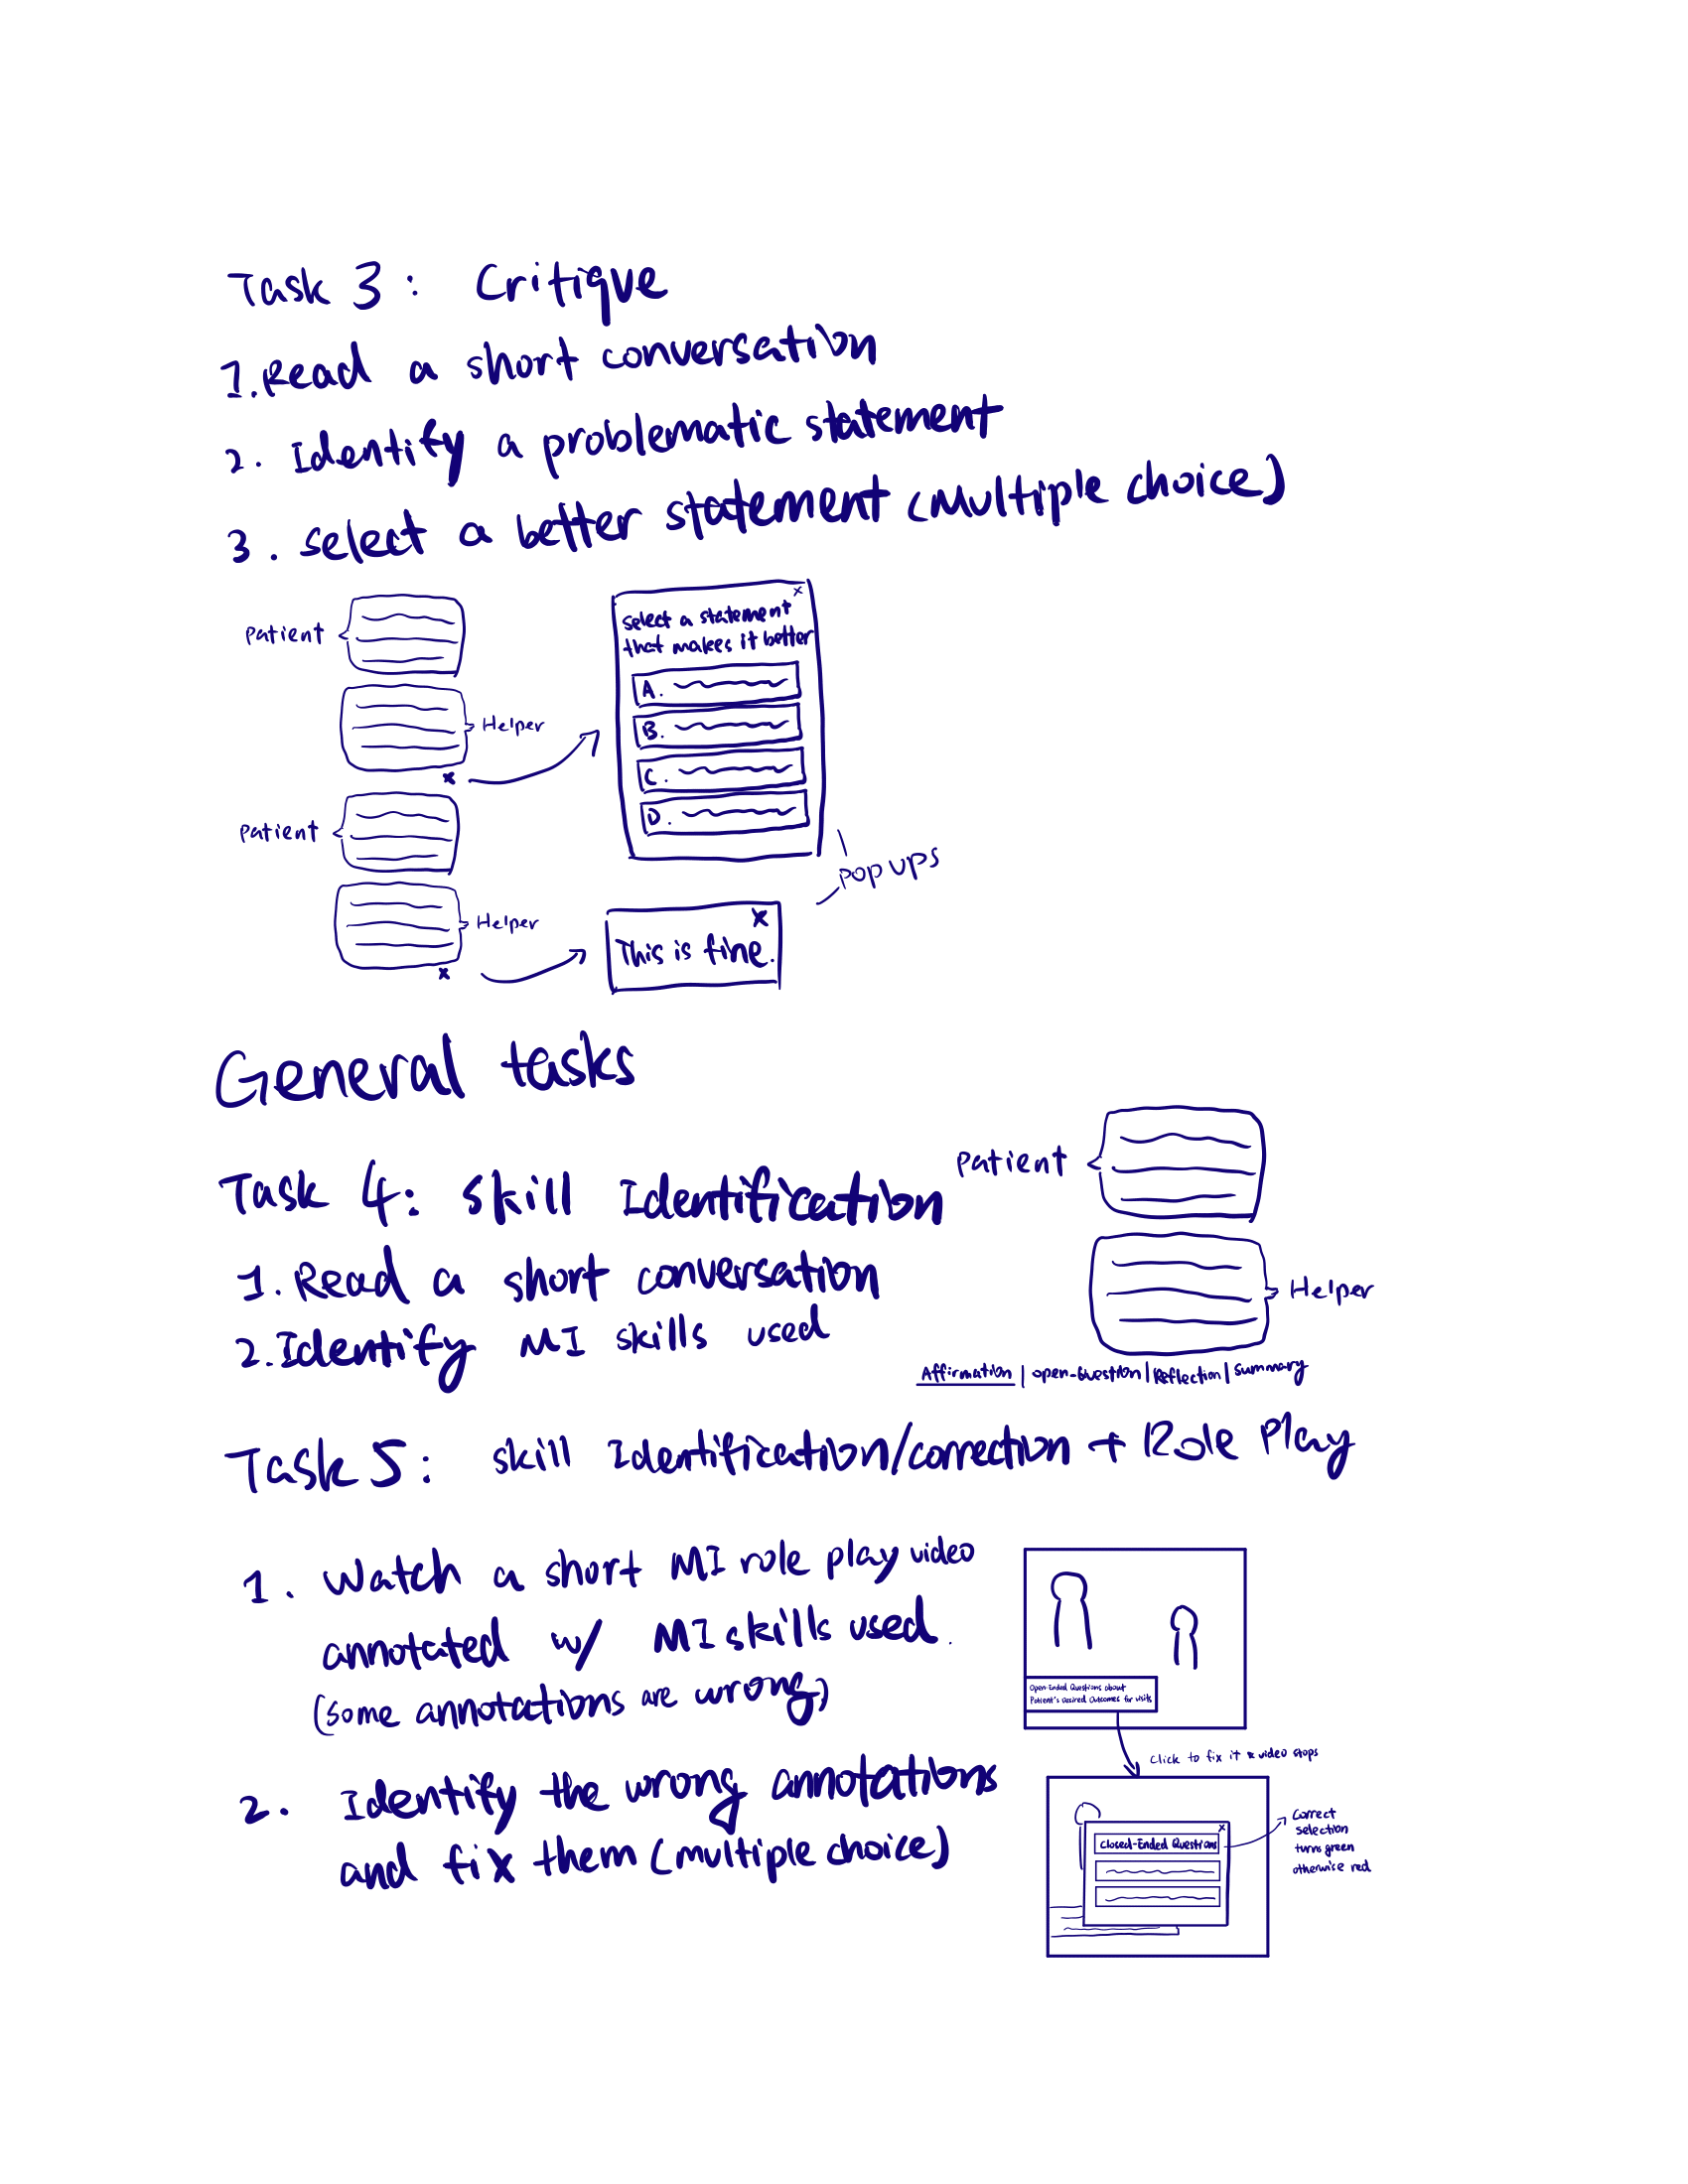 Task 3: Critique
1. Read a short conversation
2. Identify a problematic statement
3. select a better statement (multiple choice)
Patient
Helper
x
Patient
Helper
x
x
select a statement
that makes it better
A.
B.
C.
D.
Pop ups
x
This is fine.
General tasks
Task 4: skill Identification
1. Read a short conversation
2. Identify MI skills used
Patient
Helper
Affirmation | open-Question | Reflection | summary
Task 5: skill Identification/correction + Role Play
1. Watch a short MI role play video
annotated w/ MI skills used.
(some annotations are wrong)
2. Identify the wrong annotations
and fix them (multiple choice)
Open-Ended Questions about
Patient's desired Outcomes for visits
Click to fix it & video stops
x
Closed-Ended Questions
Correct
selection
turns green
otherwise red